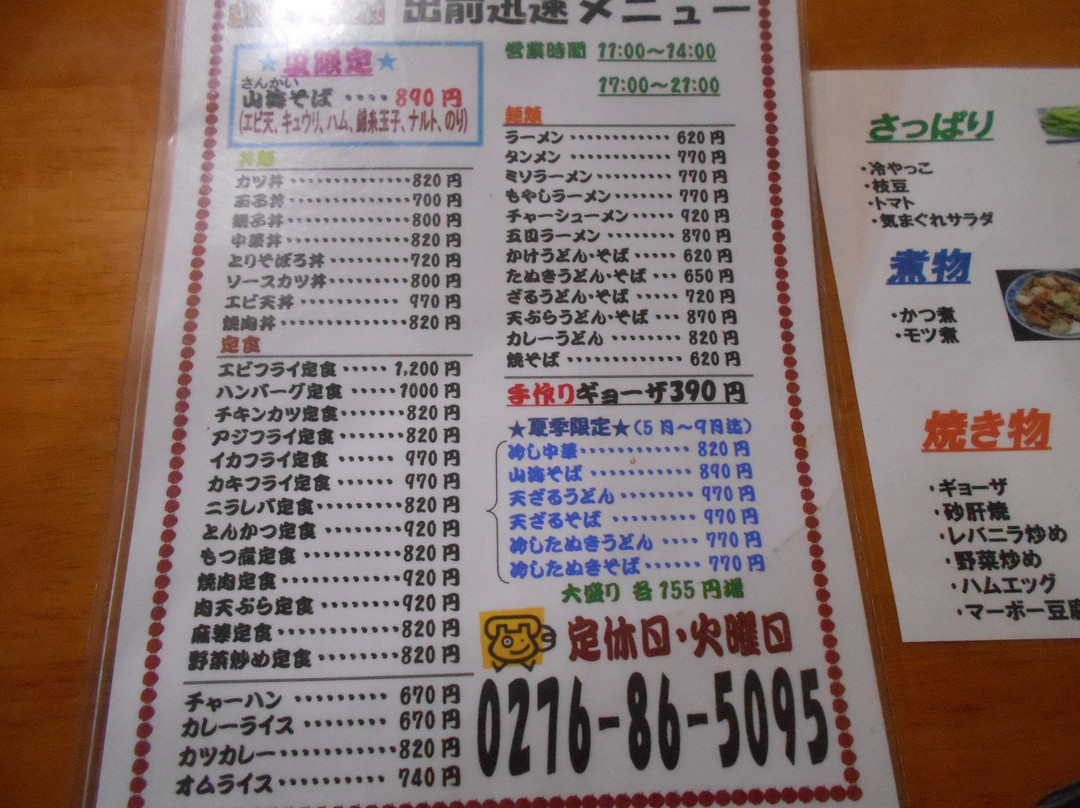 出前迅速メニュー
★夏限定★
さんかい
山海そば ････890円
(エビ天、キュウリ、ハム、錦糸玉子、ナルト、のり)
丼類
カツ丼･････････････820円
玉子丼･････････････700円
親子丼･････････････800円
中華丼･････････････820円
とりそぼろ丼･････････720円
ソースカツ丼････････800円
エビ天丼･･･････････970円
焼肉丼･････････････820円
定食
エビフライ定食･････1,200円
ハンバーグ定食･････1000円
チキンカツ定食･･････820円
アジフライ定食･･････820円
イカフライ定食･･････970円
カキフライ定食･･････970円
ニラレバ定食････････820円
とんかつ定食････････920円
もつ煮定食･････････820円
焼肉定食･･･････････920円
肉天ぷら定食････････920円
麻婆定食･･･････････820円
野菜炒め定食････････820円
チャーハン･････････670円
カレーライス････････670円
カツカレー･･････････820円
オムライス･･････････740円
営業時間 11:00～14:00
17:00～21:00
麺類
ラーメン････････････620円
タンメン････････････770円
ミソラーメン････････770円
もやしラーメン･･････770円
チャーシューメン････920円
五目ラーメン･･･････870円
かけうどん･そば･････620円
たぬきうどん･そば･･･650円
ざるうどん･そば･････720円
天ぷらうどん･そば･･･870円
カレーうどん････････820円
焼そば･････････････620円
手作りギョーザ390円
★夏季限定★(5月～9月迄)
冷し中華･･･････････820円
山海そば･･･････････890円
天ざるうどん････････970円
天ざるそば･････････970円
冷したぬきうどん････770円
冷したぬきそば･･････770円
大盛り 各155円増
定休日･火曜日
0276-86-5095
さっぱり
･冷やっこ
･枝豆
･トマト
･気まぐれサラダ
煮物
･かつ煮
･モツ煮
焼き物
･ギョーザ
･砂肝焼
･レバニラ炒め
･野菜炒め
･ハムエッグ
･マーボー豆腐